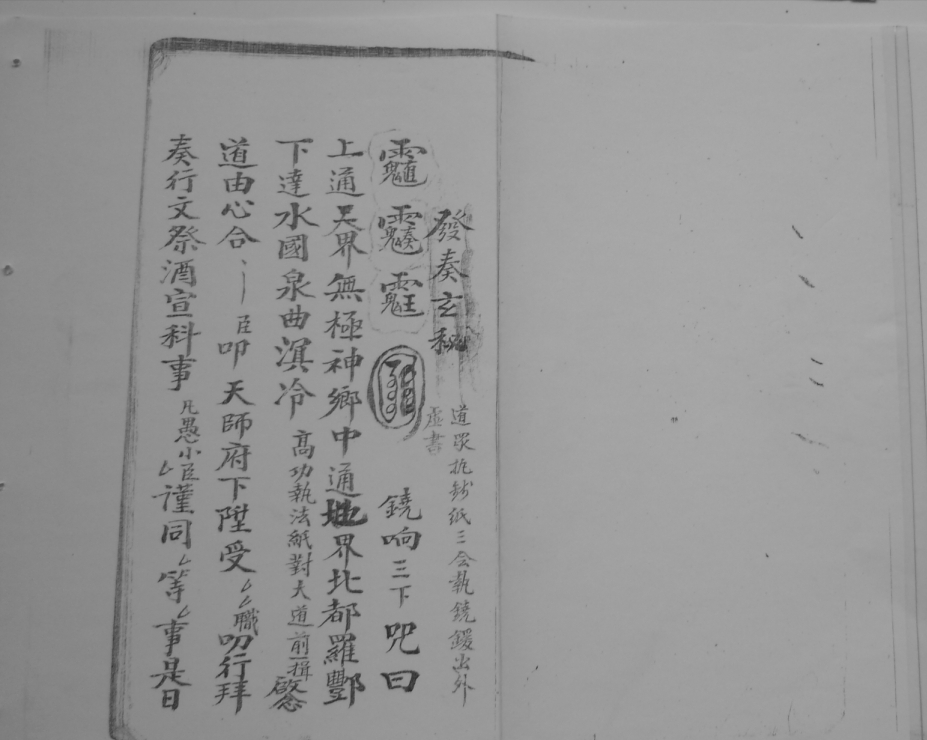 發奏玄秘
道眾執鈸紙三會執鐃鍰出外
虛書
鐃响三下咒曰
上通昊界無極神鄉中通地界北都羅酆
下達水國泉曲溟冷 高功執法紙對大道前一揖啟念
道由心合 臣叩天師府下陞受職叨行拜
奏行文祭酒宣科事 凡愚小臣謹同等事是日